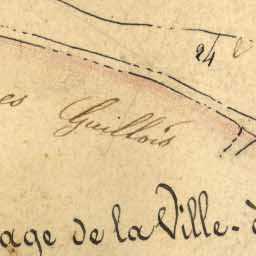 24
es Guillois
age de la Ville-